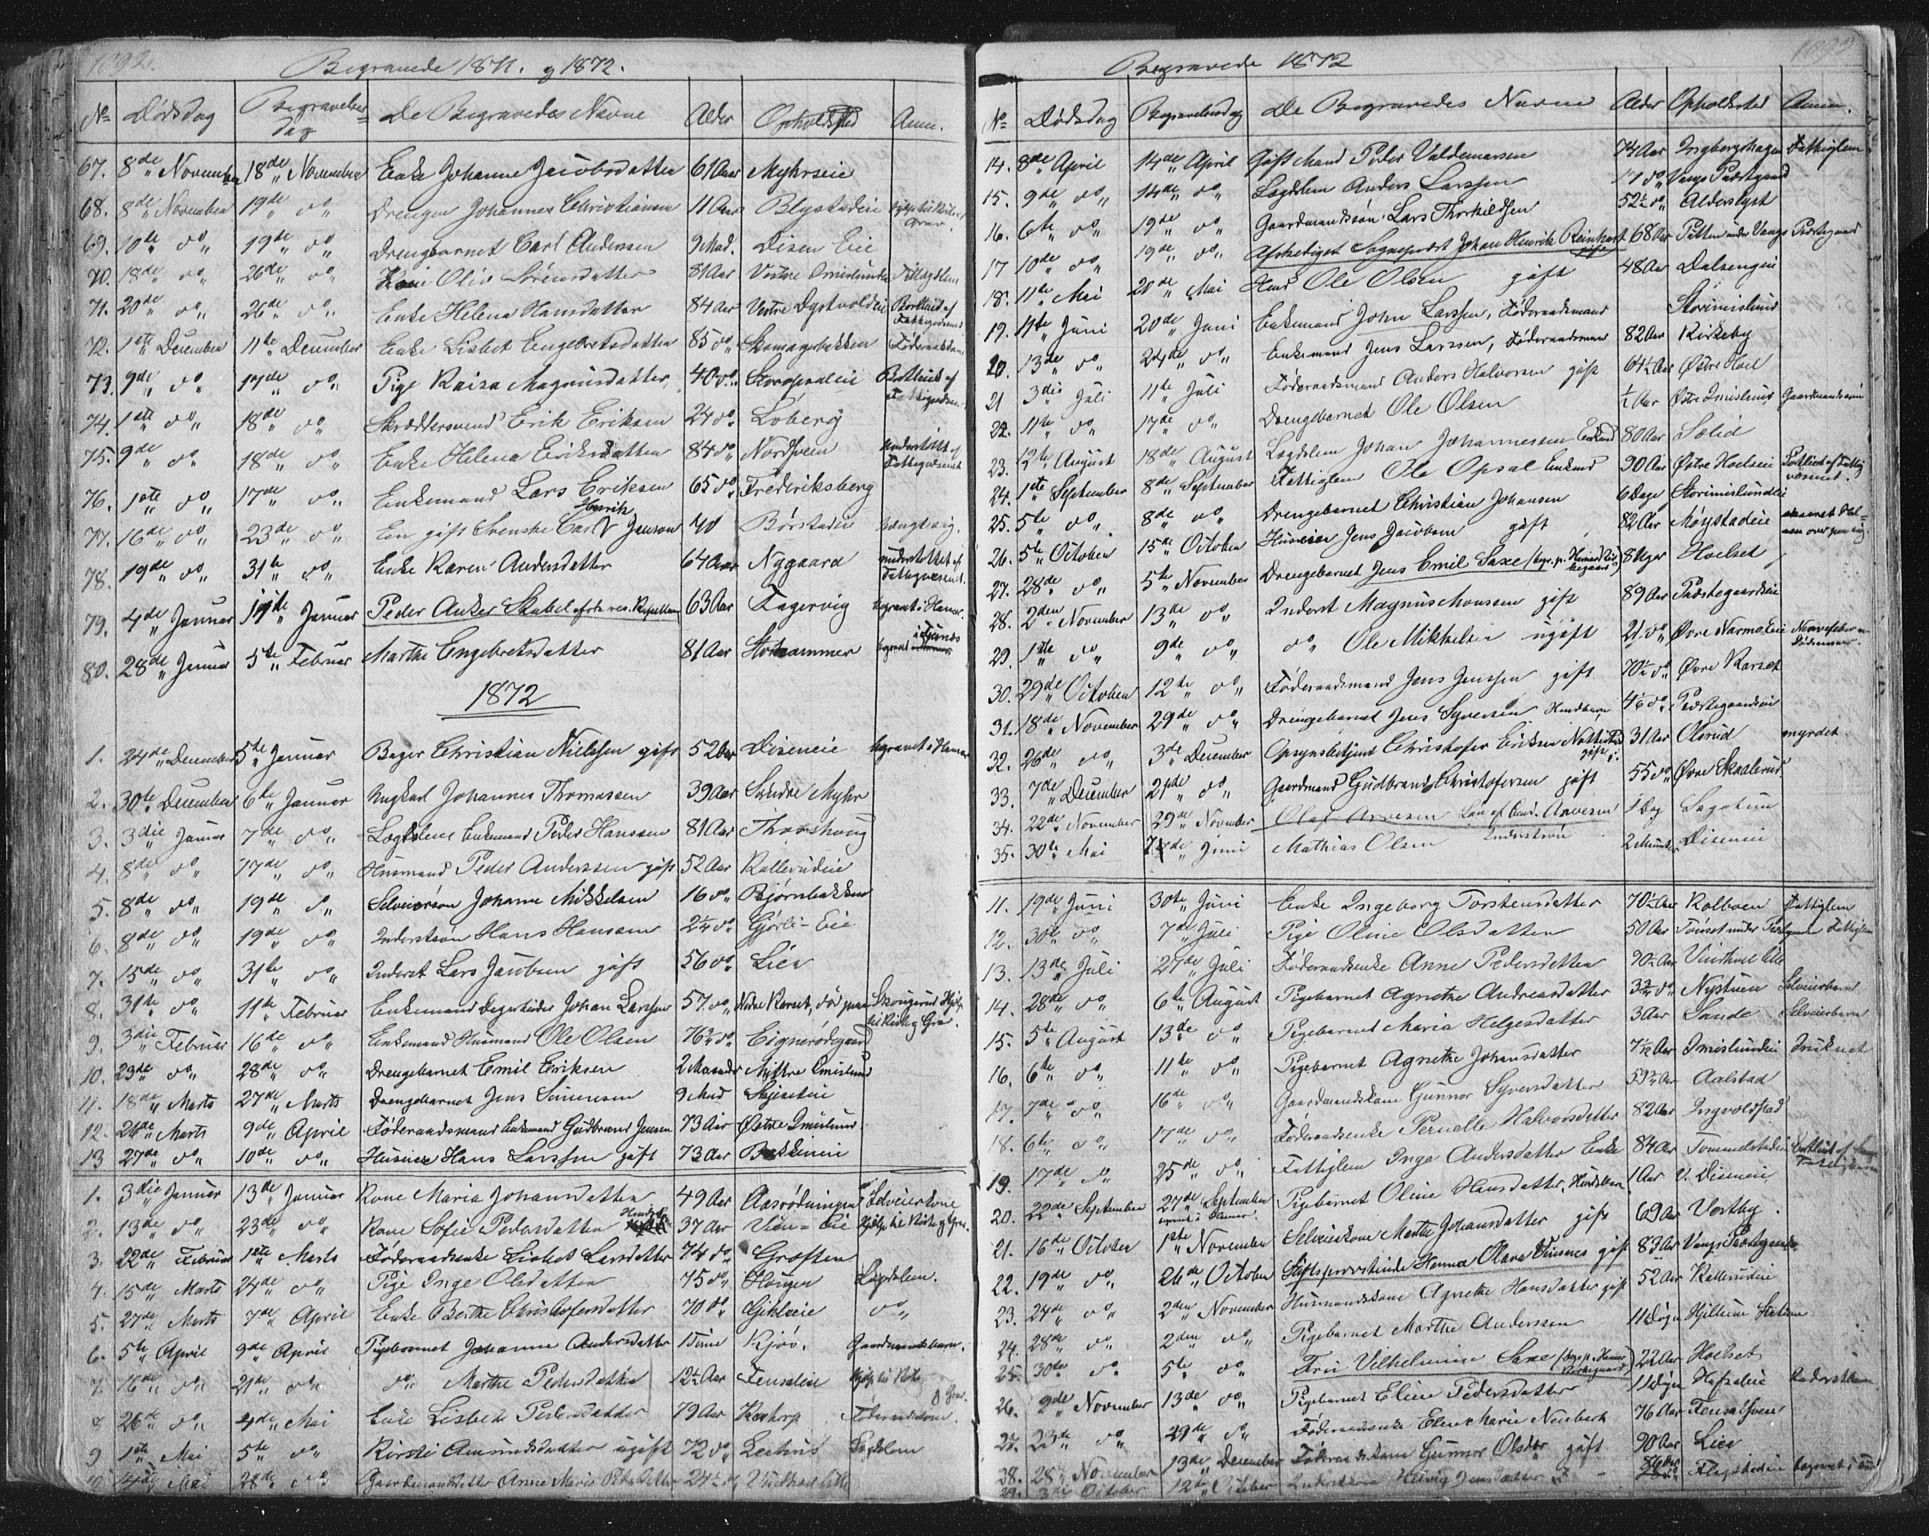 1092.
Begravede 1871. og 1872.
No Dødsdag Begravelses dag De Begravedes Navne Alder Opholdsted Anm.
67. 8de November 18de November Enke Johanne Jacobsdatter 61 Aar Myhrseie
68. 8de November 19de do Drengen Johannes Christiansen 11 Aar Blystadeie
69. 10de do 19de do Drengebarnet Carl Andersen 9 Mad. Disen Eie
70. 18de do 26de do Olia Sørensdatter 81 Aar Vestre Imislundeie Fattiglem
71. 20de do 26de do Enke Helena Hansdatter 84 Aar Vestre Dystvoldeie Bortlicit af Fattigvæsenet
72. 1ste December 11te December Enke Lisbet Engebretsdatter 85 do Skomagerbakken Føderaadskone
73. 9de do 17de do Pige Kaisa Magnusdatter 40 do Bortlicit af Fattigvæsen
74. 1ste do 18de do Skræddersvend Erik Eriksen 24 do Loberg
75. 9de do 18de do Enke Helena Eriksdatter 84 do Nordsveen understøttet af Fattigvæsenet
76. 1ste do 17de do Enkemand Lars Eriksen 65 do Frederiksberg
77. 16de do 23de do En gift Svenske Carl Henrik Jansson 40 Børstadeie
78. 19de do 31te do Enke Karen Andersdatter 64 Aar Nygaard understøttet af Fattigvæsenet
79. 4de Januar 19de Januar Peder Anker Skabel afsk. res. Kapellan 63 Aar Fagervig begravet i Hamar
80. 28de Januar 5te Februar Marthe Engebretsdatter 81 Aar Storhammer begravet i Furnes
1872
1. 24de December 5te Januar Bager Christian Nielsen gift 52 Aar Diseneie begravet i Hamar
2. 30te December 6te Januar Ungkarl Johannes Thomassen 39 Aar Søndre Myhr
3. 3die Januar 7de do Lægdslem Enkemand Peder Hanssen 81 Aar Thorshoug
4. 8de do 17de do Husmand Peder Anderssen gift 52 Aar Kallerudeie
5. 8de do 19de do Selveiersøn Johanne Mikkelsen 16 do Bjørnbakken
6. 8de do 19de do Inderstsøn Hans Hanssen 2½ do Gjørli-Eie
7. 15de do 31te do Inderst Lars Jacobsen gift 56 do Lien
8. 31te do 11te Februar Enkemand Johan Larssen 57 do Nedre Karset, død paa Skougerud Hjælp til Kirke og Grav.
9. 3die Februar 16de do Enkemand Husmand Ole Olsen 76½ do
10. 29de do 28de do Drengebarnet Emil Eriksen 2 Maaneder Imislund
11. 18de Marts 27de Marts Drengebarnet Jens Simensen 9 Mad
12. 26de Marts 9de April Føderaadsmand Enkemand Gudbrand Jensen 73 Aar Østre Imislund
13 27de do 10de do Husmand Hans Larssen gift 73 Aar Bækkeneie
1. 3die Januar 13de Januar Kone Maria Johansdatter 49 Aar Aasrødningen Selveierkone
2. 13de do 23de do Kone Sofie Pedersdatter 37 Aar Vien-Eie Hjælp til Kirke og Grav
3. 22de Februar 1ste Marts Føderaadsenke Lisbet Larsdatter 74 do Grøften
4. 15de Marts 24de do Pige Inge Olsdatter 75 do Hougen Lægdslem.
5. 27de Marts 7de April Enke Berthe Christofersdatter 70 do do
6. 5te April 9de April Pigebarnet Johanne Andersdatter 1 Time Kjos. Gaardmandsbarn.
7. 16de do 21de do do Marthe Pedersdatter 12½ Aar Fensaleie Hjælp til Kirke og Grav
8 26de do 4de Mai Enke Lisbet Pedersdatter 79 Aar Korthorp
9 1ste Mai 5te do Kirsti Amundsdatter ugift 72 do Lægdslem
10 Mai 28de do Anne Marie 24½ do

1093
Begravede 1872
No Dødsdag Begravelsesdag De Begravedes Navne Alder Opholdsted Anm.
14. 8de April 14de April Gift Mand Peder Valdemarsen 74 Aar Ingberghagen Fattiglem
15. 9de do 14de do Lægdslem Anders Larssen 77 do Vangs Præstgaard
16. 6te do 19de do Gaardmandssøn Lars Thorkildsen 52½ do Alderslyst
17 10de do 19de do Afskediget Sogneprest Johan Henrik Reinhart gift 68 Aar Pætten under Vangs Præstegaard
18. 11te Mai 20de Mai Huus Ole Olsen gift 48 Aar Dalsengeie
19. 11te Juni 20de Juni Enkemand John Larssen, Føderaadsmand Storimislund
20. 13de do 24de do Enkemand Jens Larssen, Føderaadsmand 82 Aar Kirkeby
21 3die Juli 11te Juli Føderaadsmand Anders Halvorsen gift 64½ Aar Østre Hoel
22. 11te do 17de do Drengebarnet Ole Olsen ½ Aar Østre Imislund Gaardmandssøn
23. 12te August 18de August Lægdslem Johan Johannessen Enkemd 80 Aar Solid
24. 1ste September 8de September Fattiglem Ole Opsal Enkemd 90 Aar Østre Hoelseie Bortliciet af Fattigvæsenet.
25. 5te do 8de do Drengebarnet Christian Johansen 6 Dage Storimislundeie
26. 5te October 15de October Huseier Jens Jacobsen gift 82 Aar Møystadeie
27. 28de do 5te November Drengebarnet Jens Emil Saxe (begr. p. Hamar Kirkegaard) 8 Uger Hoelset
28. 2den November 13de do Inderst Magnus Monssen gift 89 Aar Præstegaardseie
29. 1ste do 9de do do Ole Mikkelsen ugift 21 do Øvre Narmo Eie
30. 29de October 12te do Føderaadsmand Jens Jenssen gift 70½ do Øvre Karset
31. 18de November 29de do Drengebarnet Jens Syversen Husmbarn 4½ do Præstegaardseie
32. 26de do 3de December Opsynsbetjent Christofer Eriksen gift 31 Aar Olsrud myrdet
33. 7de December 21de do Gaardmand Gudbrand Christofersen gift 55 do Øvre Skaalerud
34. 22de November 29de November Olaf Arvesen Søn af Cand. Arvesen 1 Dag Sagatun
35. 30te Mai 7de Juni Mathias Olsen Inderstsøn 2 Maaneder Diseneie
11. 19de Juni 30te Juni Enke Ingeborg Torstensdatter 70½ Aar Kolboen Fattiglem
12. 30te do 7de Juli Pige Oline Olsdatter 50 Aar Fattiglem
13. 13de Juli 27de Juli Føderaadsenke Anne Pedersdatter 90½ Aar
14. 28de do 6te August Pigebarnet Agnethe Andreasdatter 3¾ do Nystuen Selveierbarn
15. 5te August 13de do Pigebarnet Maria Helgesdatter 3 Aar Sande Selveierbarn
16. 6te do 11te do Pigebarnet Agnethe Johansdatter 7½ Aar Imislundeie Druknet
17. 7de do 16de do Gaardmandskone Gunnor Syversdatter 59½ Aar Aalstad
18. 6te do 17de do Føderaadsenke Pernelle Halvorsdatter 82 Aar Ingvoldstad
19. 17de do 25de do Fattiglem Inga Andersdatter Enke 84 Aar Tommelstadeie
20. 22de September 27de September Pigebarnet Oline Hansdatter, Husmdsbarn 1 Aar V. Diseneie
21. 16de October 1ste November Selveierkone Marthe Johansdatter gift 69 Aar Vestby
22. 19de do 26de October Stiftsprovstinde Hanna Olava Finsnes gift 83 Aar Vangs Præstegaard
23. 24de do 2den November Husmandskone Agnethe Hansdatter gift 52 Aar Kallerudeie
24. 28de do 2den do Pigebarnet Marthe Anderssen 11 Døgn Hjellum Station
25. 30de do 5te do Fru Vilhelmine Saxe (begr. p. Hamar Kirkegaard) 22 Aar Hoelset
26. 9de November 13de do Pigebarnet Eline Pedersdatter 11 Døgn Hafsaleie
27. 23de do 29de do Føderaadsenke Elen Marie Neubert 76 Aar
28. 25de November 13de December Føderaadskone Gunnor Olsdtr gift 90 Aar Lien
29. 3die October 12te October Inderstkone Helvig Jensdatter Flagstadeie begravet i